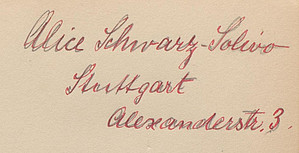 Alice Schwarz-Solivo
Stuttgart
Alexanderstr. 3.